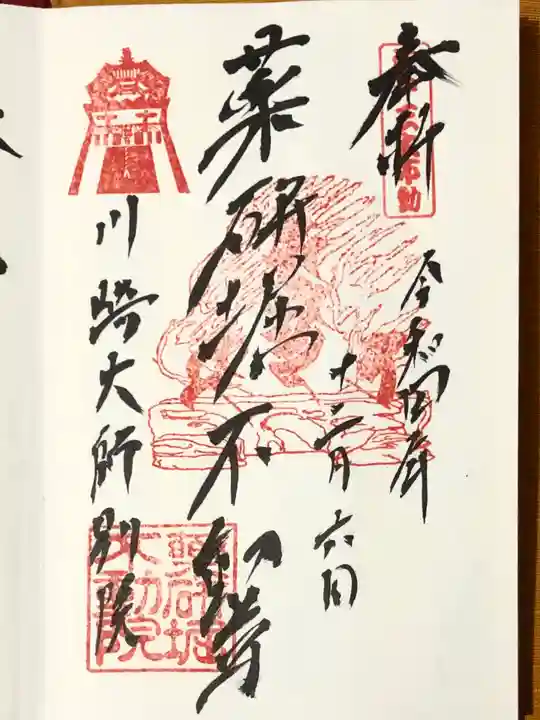 奉拝
令和四年
十二月六日
薬研堀不動尊
川崎大師別院
薬研堀
不動院